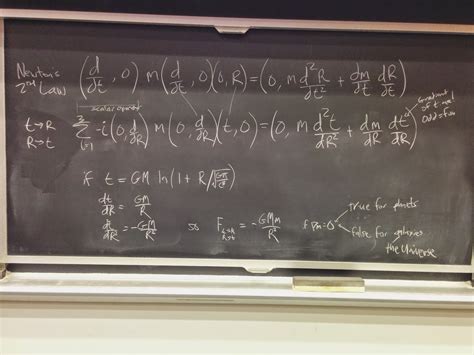 Newton's 2nd Law (d/dt, 0) m (d/dt, 0)(0, R) = (0, m d²R/dt² + dm/dt dR/dt)
scalar operator
t→R R→t Σ -i (0, d/dR) m (0, d/dR)(t, 0) = (0, m d²t/dR² + dm/dR dt/dR)
if t = GM ln(1 + R/
dt/dR = GM/R
= -GM/R² so F = -GMm/R² if ∇m=0 true for planets
false for galaxies
the Universe